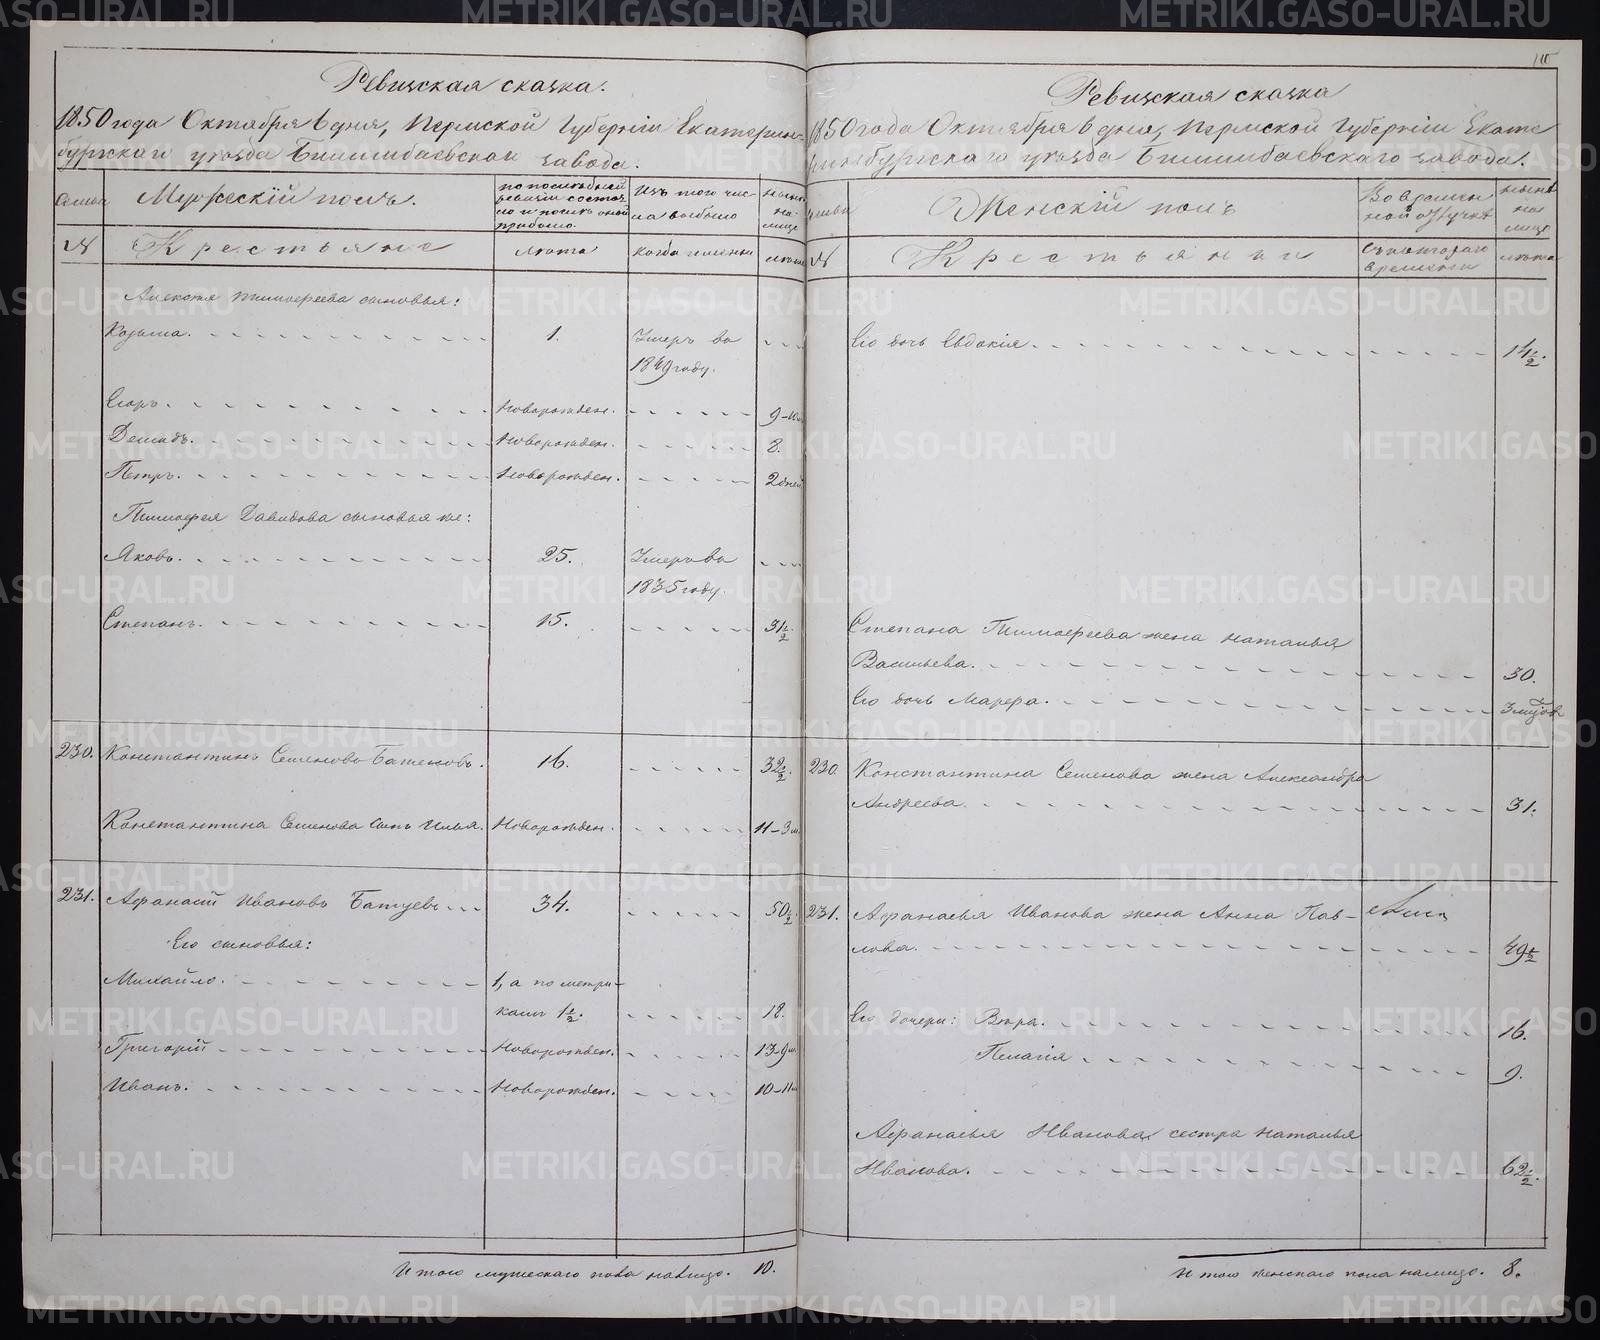 Ревизская сказка.
1850 года Октября 6 дня, Пермской Губернiи Екатерин-
бургскаго уѣзда Билимбаевскаго завода.
Мужескiй полъ.
по послѣдней
ревизiи состоя-
ло и послѣ оной
прибыло.
Изъ того чис-
ла выбыло
нынѣ
на
лицо
№
Крестьяне
лѣта
Когда именно
лѣта
Алексѣя Тимофеева сыновья:
Козьма.
1.
Умеръ въ
1849 году.
Егоръ.
Новорожден.
9-10
Демидъ.
Новорожден.
8.
Петръ.
Новорожден.
2 дней
Тимофея Давыдова сыновья же:
Яковъ.
25.
Умеръ въ
1835 году.
Степанъ.
15.
31 1/2.
230.
Константинъ Семеновъ Батеновъ.
16.
32 1/2.
Константина Семенова сынъ Илья.
Новорожден.
11-3 м.
231.
Афанасiй Ивановъ Батуевъ
34.
50 1/2.
Его сыновья:
Михайло.
1, а по метри-
камъ 1 1/2.
18.
Григорiй
Новорожден.
13-9 м.
Иванъ.
Новорожден.
10-11 м.
Итого мужескаго пола налицо. 10.
Ревизская сказка
1850 года Октября 6 дня, Пермской Губернiи Екате
ринбургскаго уѣзда Билимбаевскаго завода.
Женскiй полъ
Во времен
ной отлучкѣ
нынѣ
на
лицо
№
Крестьянки
Съ котораго
времени
лѣта
Его дочь Евдокiя.
14 1/2.
Степана Тимофеева жена Наталья
Васильева.
30.
Его дочь Марфа.
230.
Константина Семенова жена Александра
Андреева.
31.
231.
Афанасья Иванова жена Анна Пав-
лова.
49 1/2
Его дочери: Вѣра.
16.
Пелагiя
9.
Афанасья Иванова сестра Наталья
Иванова.
62 1/2.
Итого женскаго пола налицо. 8.
METRIKI.GASO-URAL.RU